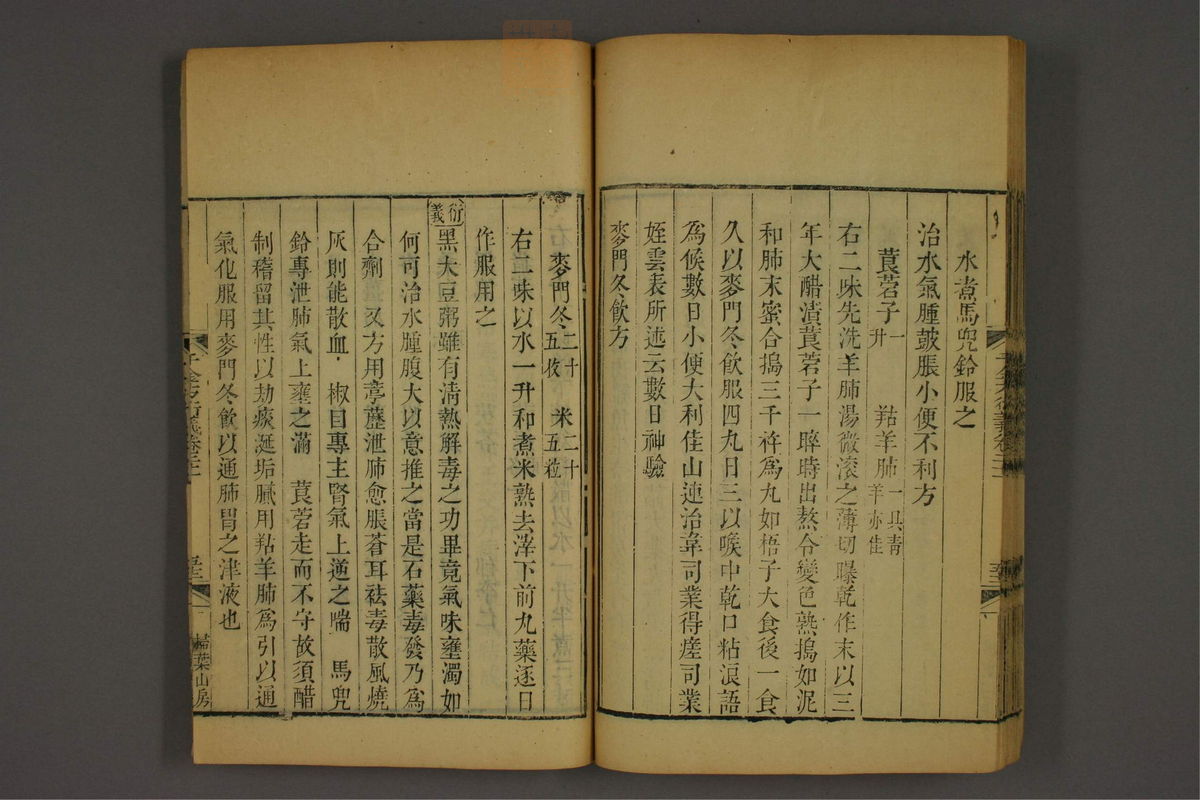 水煮馬兜鈴服之
治水氣腫皷脹小便不利方
莨菪子一升 羖羊肺一具青羊亦佳
右二味先洗羊肺湯微滾之薄切曝乾作末以三
年大醋漬莨菪子一晬時出熬令變色熟搗如泥
和肺末蜜合搗三千杵為丸如梧子大食後一食
久以麥門冬飲服四丸日三以喉中乾口粘浪語
為候數日小便大利佳山連治韋司業得瘥司業
姪雲表所述云數日神驗
麥門冬飲方
麥門冬二十五枚 米二十五粒
右二味以水一升和煮米熟去滓下前丸藥逐日
作服用之
衍義黑大豆粥雖有清熱解毒之功畢竟氣味壅濁如
何可治水腫腹大以意推之當是石藥毒發乃為
合劑 又方用葶藶泄肺愈脹蒼耳祛毒散風燒
灰則能散血 椒目專主腎氣上逆之喘 馬兜
鈴專泄肺氣上壅之滿 莨菪走而不守故須醋
制稽留其性以劫痰涎垢膩用羖羊肺為引以通
氣化服用麥門冬飲以通肺胃之津液也
千金方衍義卷二十一
掃葉山房